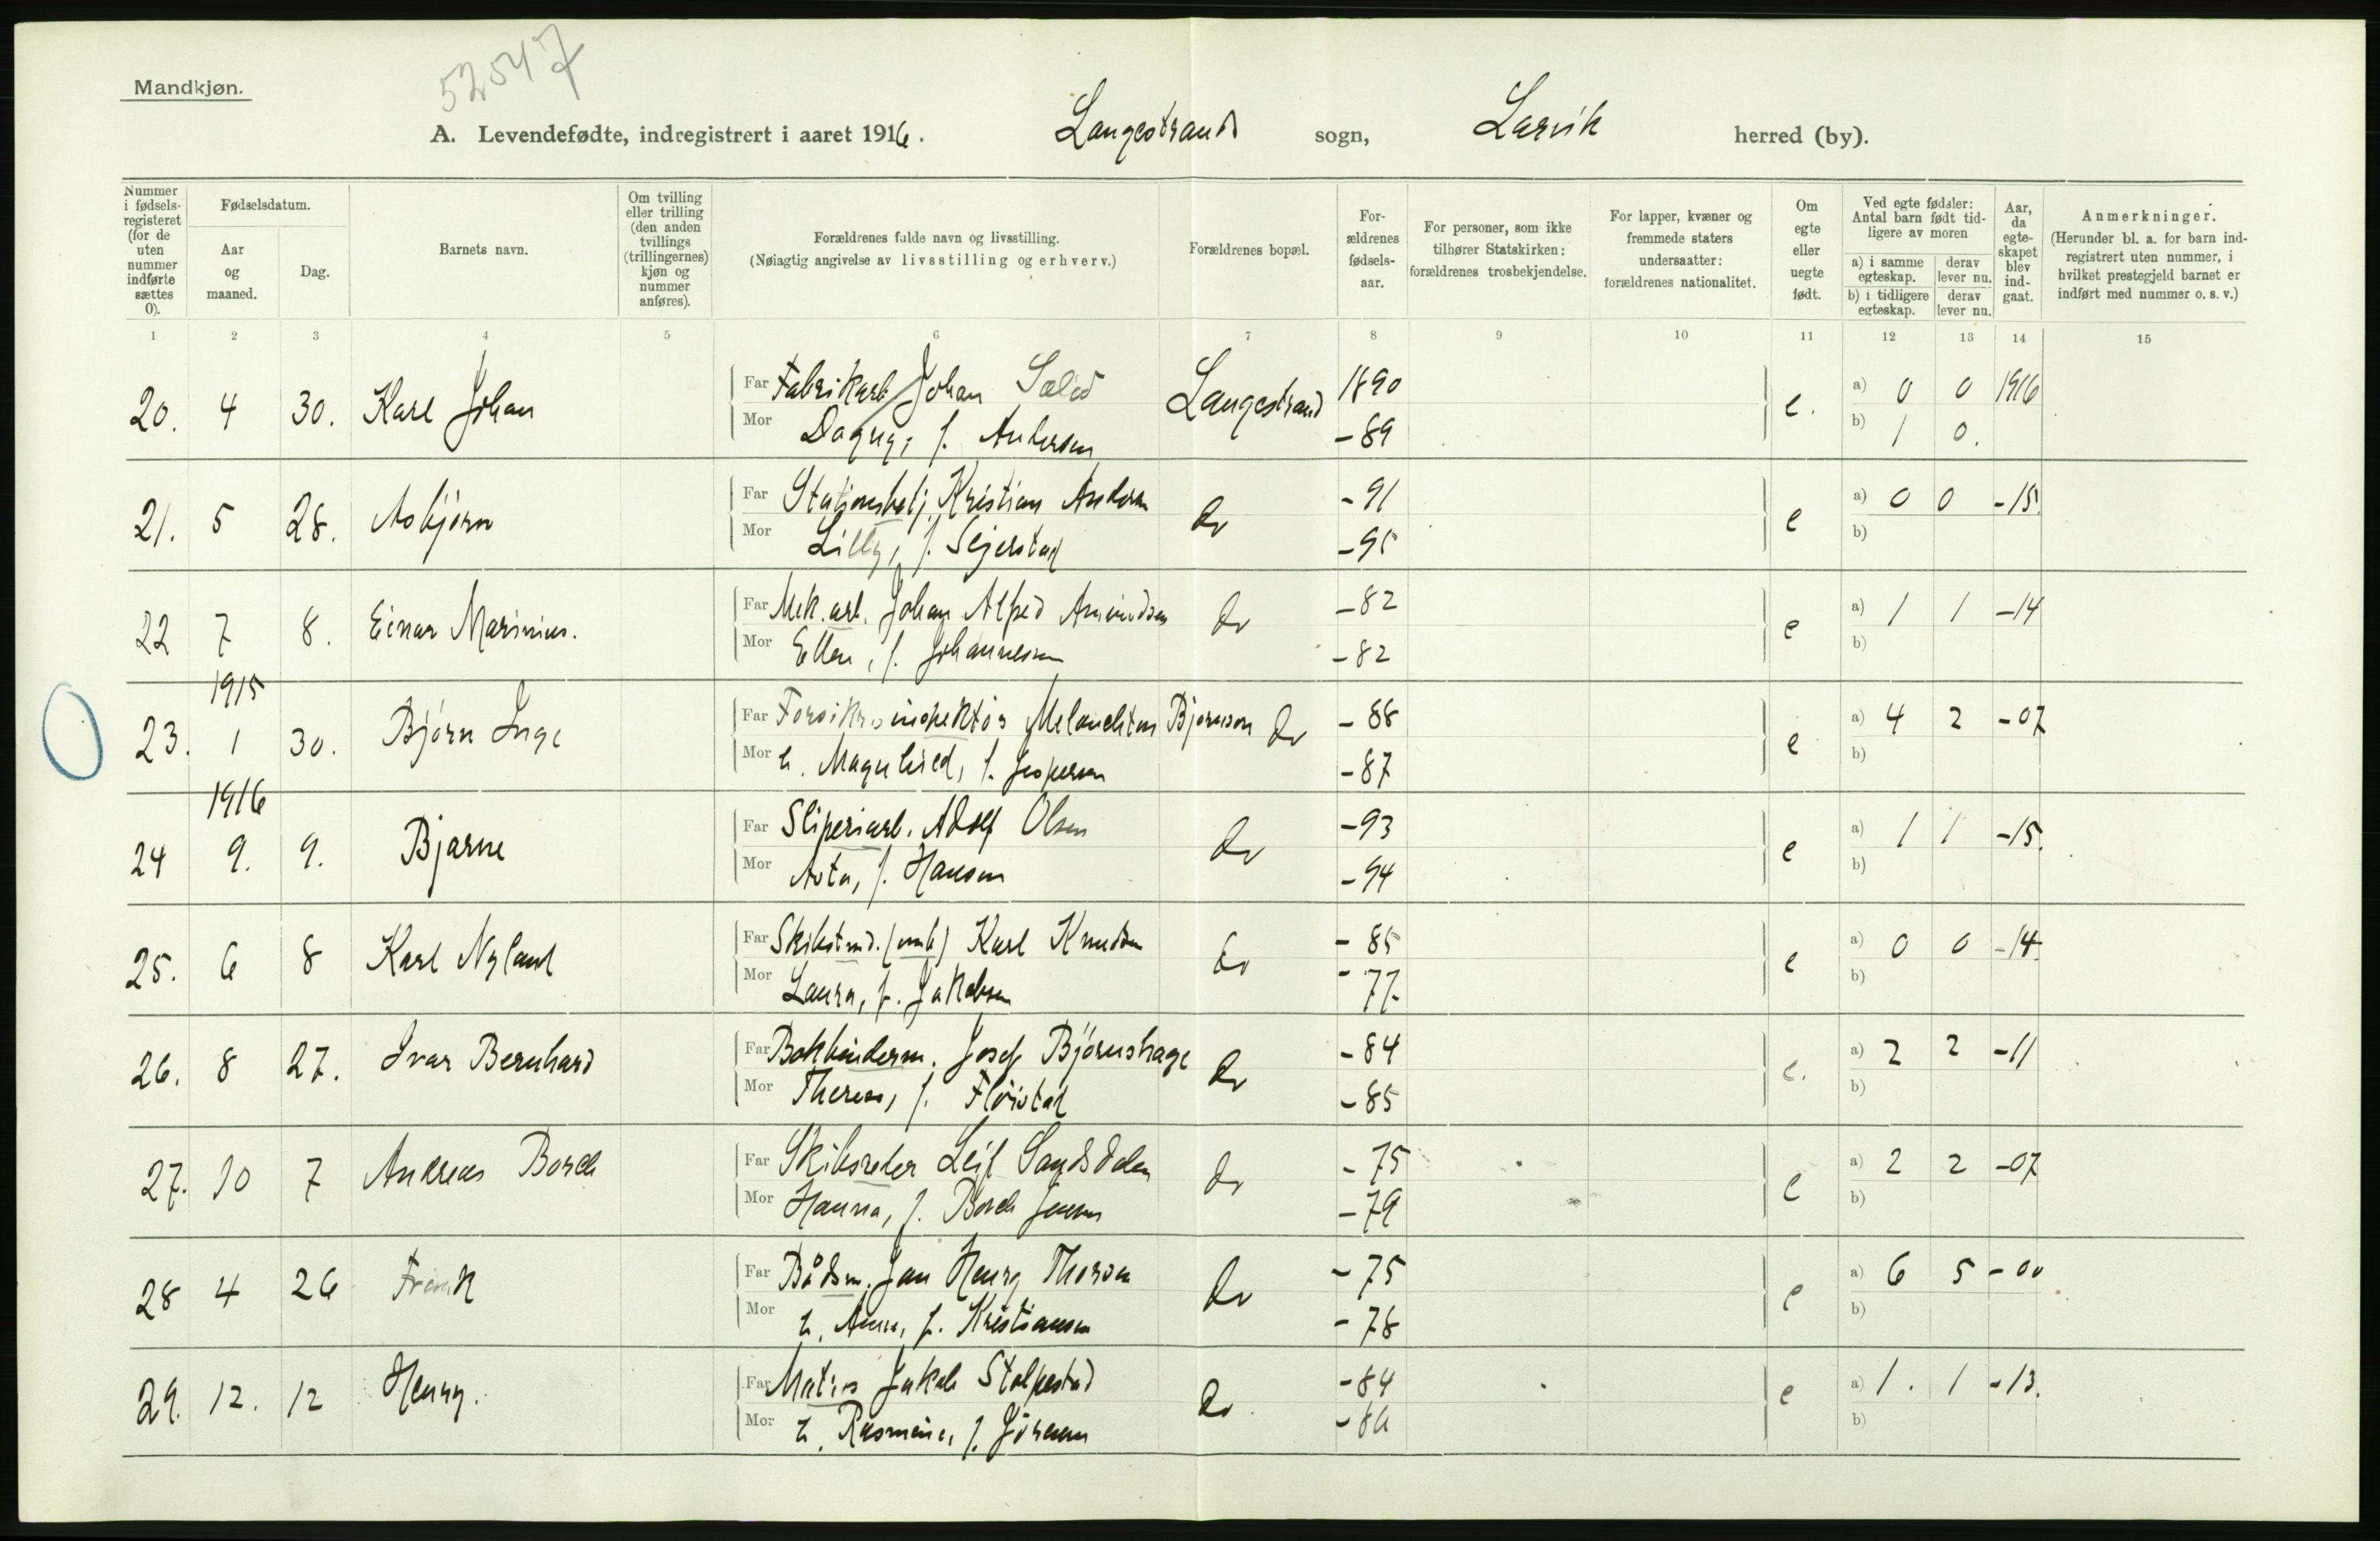 Mandkjøn.
52547
A. Levendefødte, indregistrert i aaret 1916. Langestrand sogn, Larvik herred (by).
Nummer i fødselsregisteret (for de uten nummer indførte sættes 0).
Fødselsdatum.
Aar og maaned.
Dag.
Barnets navn.
Om tvilling eller trilling (den anden tvillings (trillingernes) kjøn og nummer anføres).
Forældrenes fulde navn og livsstilling.
(Nøiagtig angivelse av livsstilling og erhverv.)
Forældrenes bopæl.
Forældrenes fødselsaar.
For personer, som ikke tilhører Statskirken: forældrenes trosbekjendelse.
For lapper, kvæner og fremmede staters undersaatter: forældrenes nationalitet.
Om egte eller uegte født.
Ved egte fødsler: Antal barn født tidligere av moren
a) i samme egteskap. derav lever nu.
b) i tidligere egteskap. derav lever nu.
Aar, da egteskapet blev indgaat.
Anmerkninger.
(Herunder bl. a. for barn indregistrert uten nummer, i hvilket prestegjeld barnet er indført med nummer o. s. v.)
1 2 3 4 5 6 7 8 9 10 11 12 13 14 15
20. 4 30. Karl Johan Far Fabrikarb Johan Langestrand 1890 e. a) 0 0 1916
Mor Dagny, f. Andersen -89 b) 1 0.
21. 5 28. Asbjørn Far Stationsbetj. Kristian Andersen Do -91 e a) 0 0 -15.
Mor Lilly, f. Sejerstad -95 b)
22 7 8. Einar Marinius. Far Mek. arb. Johan Alfred Amundsen Do -82 e a) 1 1 -14
Mor Ellen, f. Johannesen -82 b)
1915
23. 1 30. Bjørn Inge Far Forsikrs inspektør Melanchton Bjørnson Do -88 e a) 4 2 -07
Mor h. Magnhild, f. Jespersen -87 b)
1916
24 9. 9. Bjarne Far Sliperiarb. Adolf Olsen Do -93 e a) 1 1 -15.
Mor Asta, f. Hansen -94 b)
25. 6 8 Karl Nyland Far Skibstmd. (emb) Karl Knudsen Do -85 e a) 0 0 -14
Mor Laura, f. Jakobsen -77. b)
26. 8 27. Ivar Bernhard Far Bokbinderm. Josef Bjørnshage Do -84 e. a) 2 2 -11
Mor Therese, f. Fløistad -85 b)
27. 10 7 Andreas Borch Far Skibsreder Leif Sandsdalen Do -75 e a) 2 2 -07
Mor Hanna, f. Borch Jensen -79 b)
28 4 26 Frank Far Bådsm. Jan Henry Thorsen Do -75 e a) 6 5 -00
Mor h. Anna, f. Kristiansen -78 b)
29. 12. 12 Henry. Far Matros Jakob Stolpestad Do. -84 e a) 1. 1 -13.
Mor h. Rasmine, f. Jørgensen -86 b)